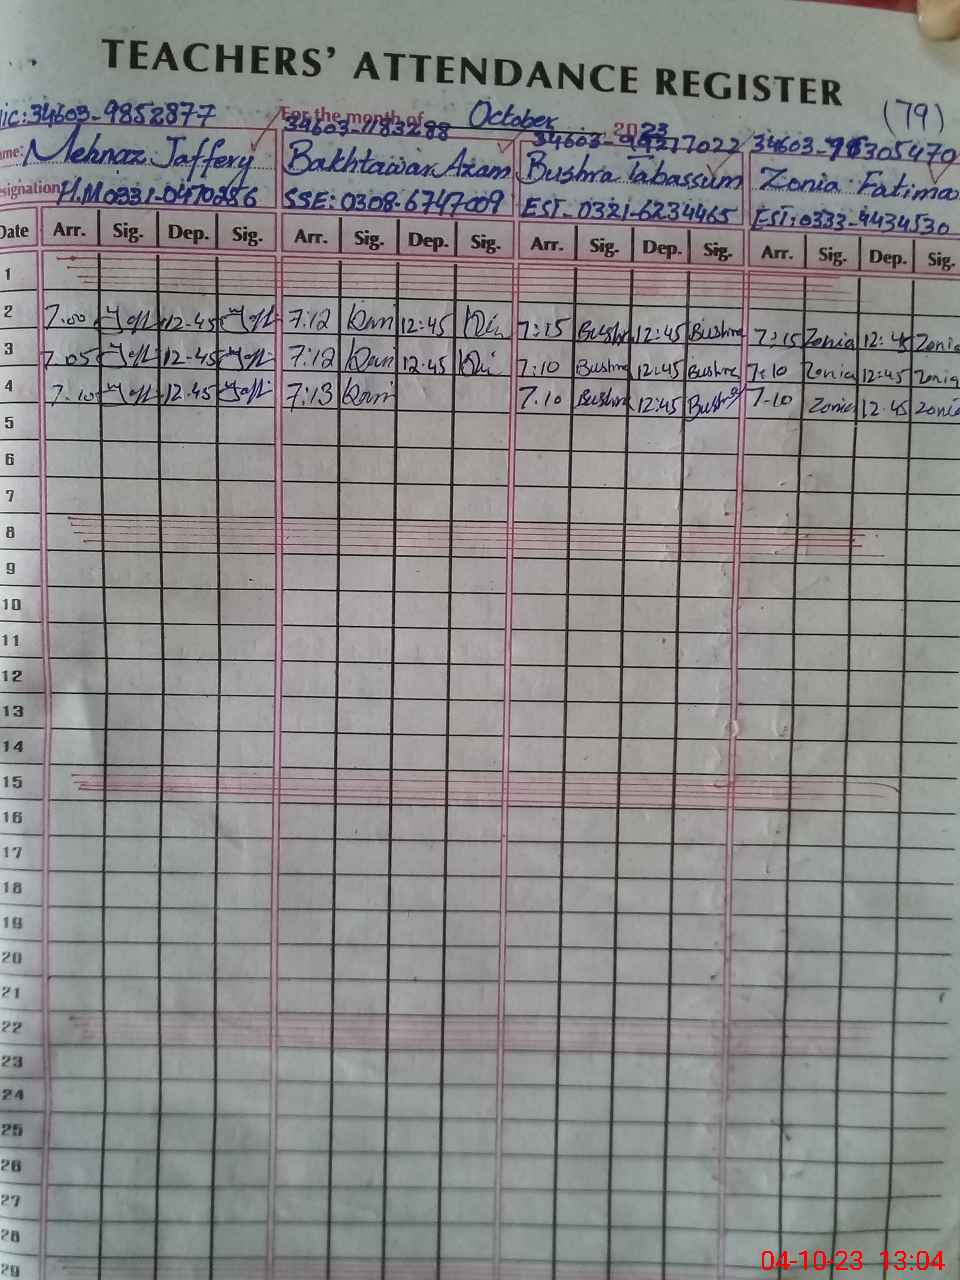 TEACHERS' ATTENDANCE REGISTER
(79)
For the month of October 2023
ic: 34603-9852877 34603-1183288 34603- 7022 34603- 305470
ame: Mehnaz Jaffery Bakhtawar Azam Bushra Tabassum Zonia Fatima
signation H.M 0331-0470286 SSE: 0308-6747009 EST- 0321-6234465 EST: 0333-4434530
Date Arr. Sig. Dep. Sig. Arr. Sig. Dep. Sig. Arr. Sig. Dep. Sig. Arr. Sig. Dep. Sig.
1
2 7.00 12-45 7:12 12:45 7:15 Bushra 12:45 Bushra 7:15 Zonia 12:45 Zonia
3 7.05 12-45 7:12 12:45 7:10 Bushra 12:45 Bushra 7:10 Zonia 12:45 Zonia
4 7.10 12.45 7:13 7.10 Bushra 12:45 Bushra 7-10 Zonia 12.45 Zonia
5
6
7
8
9
10
11
12
13
14
15
16
17
18
19
20
21
22
23
24
25
26
27
28
29
04-10-23 13:04